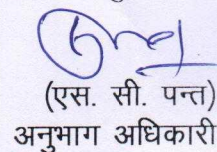 (एस. सी. पन्त)
अनुभाग अधिकारी